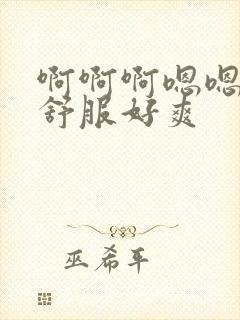 啊啊啊嗯嗯
舒服好爽
巫希平